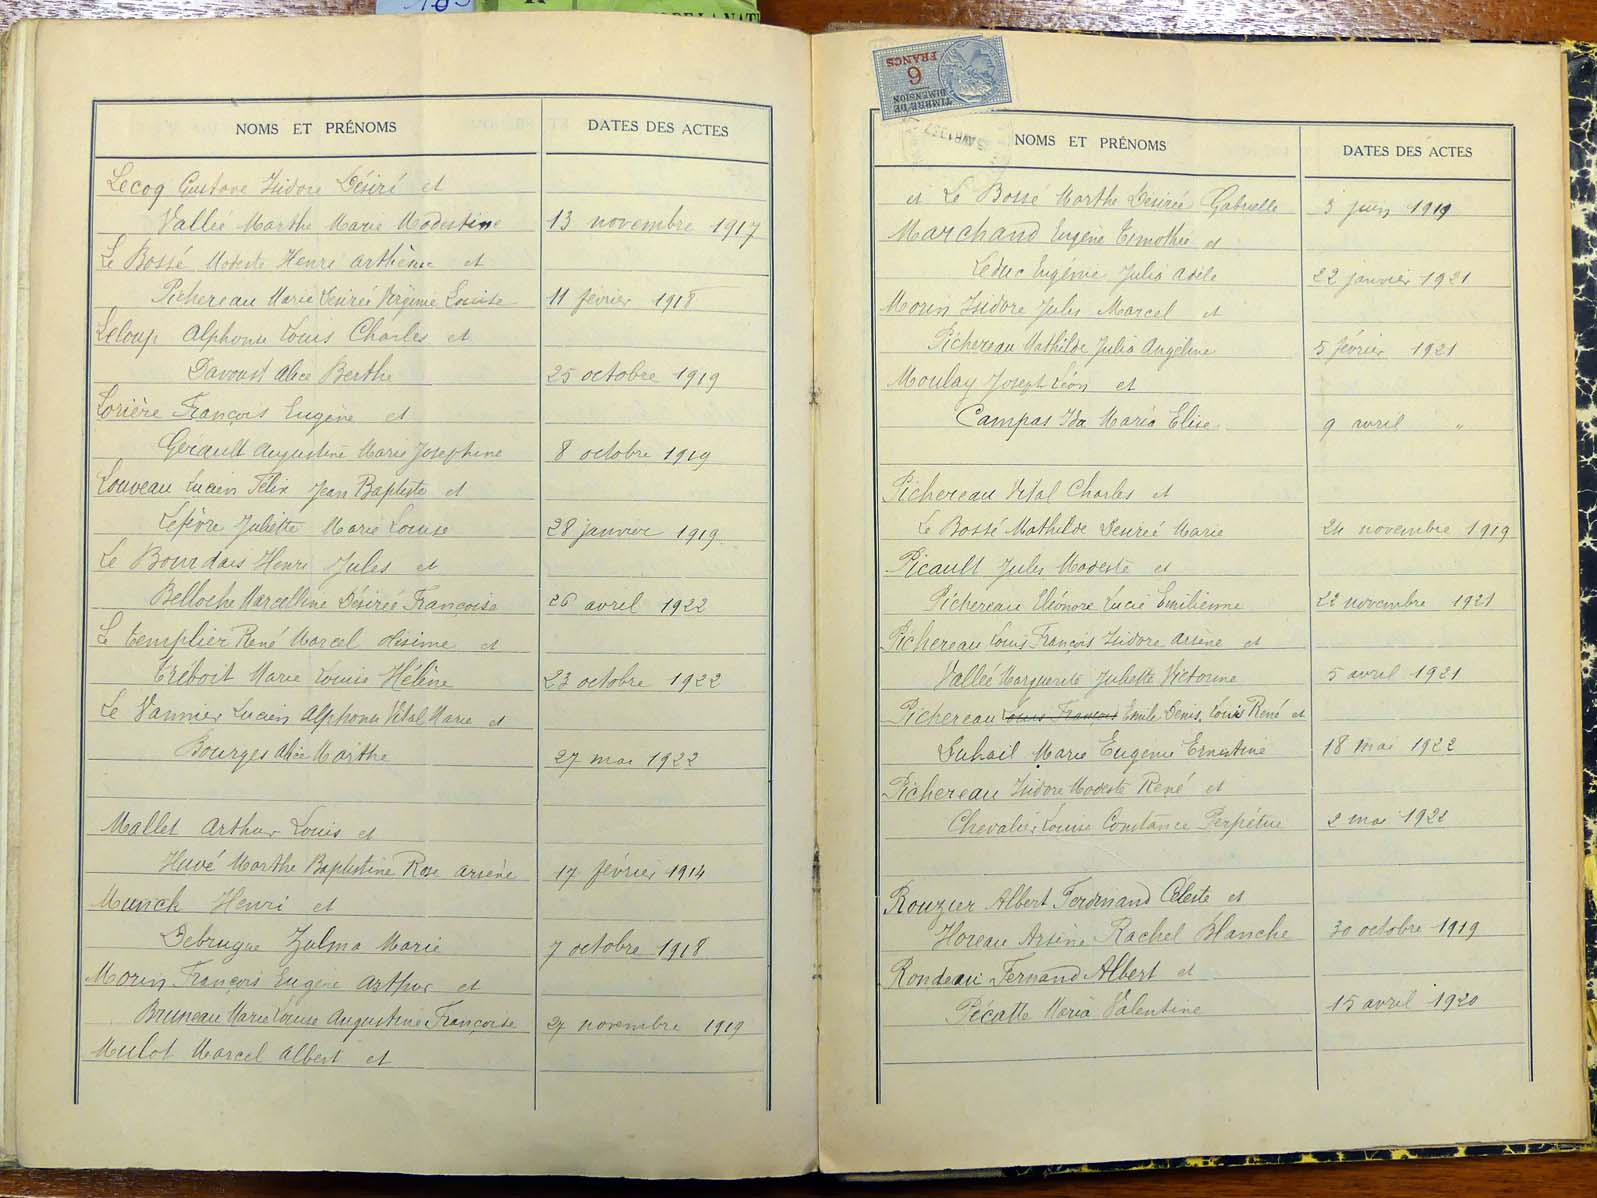 183
NOMS ET PRÉNOMS
DATES DES ACTES
Lecoq Gustave Isidore Désiré et
Vallée Marthe Marie Modestine 13 novembre 1917
Le Bossé Modeste Henri Arthème et
Pichereau Marie Désirée Virginie Louise 11 février 1918
Leloup Alphonse Louis Charles et
Davoust Alice Berthe 25 octobre 1919
Lorière François Eugène et
Gérault Augustine Marie Josephine 8 octobre 1919
Louveau Lucien Félix Jean Baptiste et
Lefèvre Juliette Marie Louise 28 janvier 1919
Le Bourdais Henri Jules et
Belloche Marcelline Désirée Françoise 26 avril 1922
Le templier René Marcel et
Créboit Marie Louise Hélène 23 octobre 1922
Le Vannier Lucien Alphonse Vital Marie et
Bourges Alice Marthe 27 mai 1922
Mallet Arthur Louis et
Huvé Marthe Baptistine Rose Arsène 17 février 1914
Munch Henri et
Debrugue Zulma Marie 7 octobre 1918
Morin François Eugène Arthur et
Bruneau Marie Louise Augustine Françoise 27 novembre 1919
Mulot Marcel Albert et
6
FRANCS
TIMBRE DE
DIMENSION
NOMS ET PRÉNOMS
DATES DES ACTES
et Le Bossé Marthe Désirée Gabrielle 3 juin 1919
Marchand Eugène Timothée et
Leduc Eugénie Julia Adèle 22 janvier 1921
Morin Isidore Jules Marcel et
Pichereau Mathilde Julia Angeline 5 février 1921
Moulay Joseph Léon et
Campas Ida Maria Elise 9 avril "
Pichereau Vital Charles et
Le Bossé Mathilde Désirée Marie 24 novembre 1919
Picault Jules Modeste et
Pichereau Eléonore Lucie Emilienne 22 novembre 1921
Pichereau Louis François Isidore Arsène et
Vallée Marguerite Juliette Victorine 5 avril 1921
Pichereau Louis François Emile Denis, Louis René et
Duhail Marie Eugenie Ernestine 18 mai 1922
Pichereau Isidore Modeste René et
Chevalier Louise Constance Perpétue 2 mai 1922
Rouzier Albert Ferdinand Céleste et
Horeau Arsène Rachel Blanche 30 octobre 1919
Rondeau Fernand Albert et
Pécatte Maria Valentine 15 avril 1920